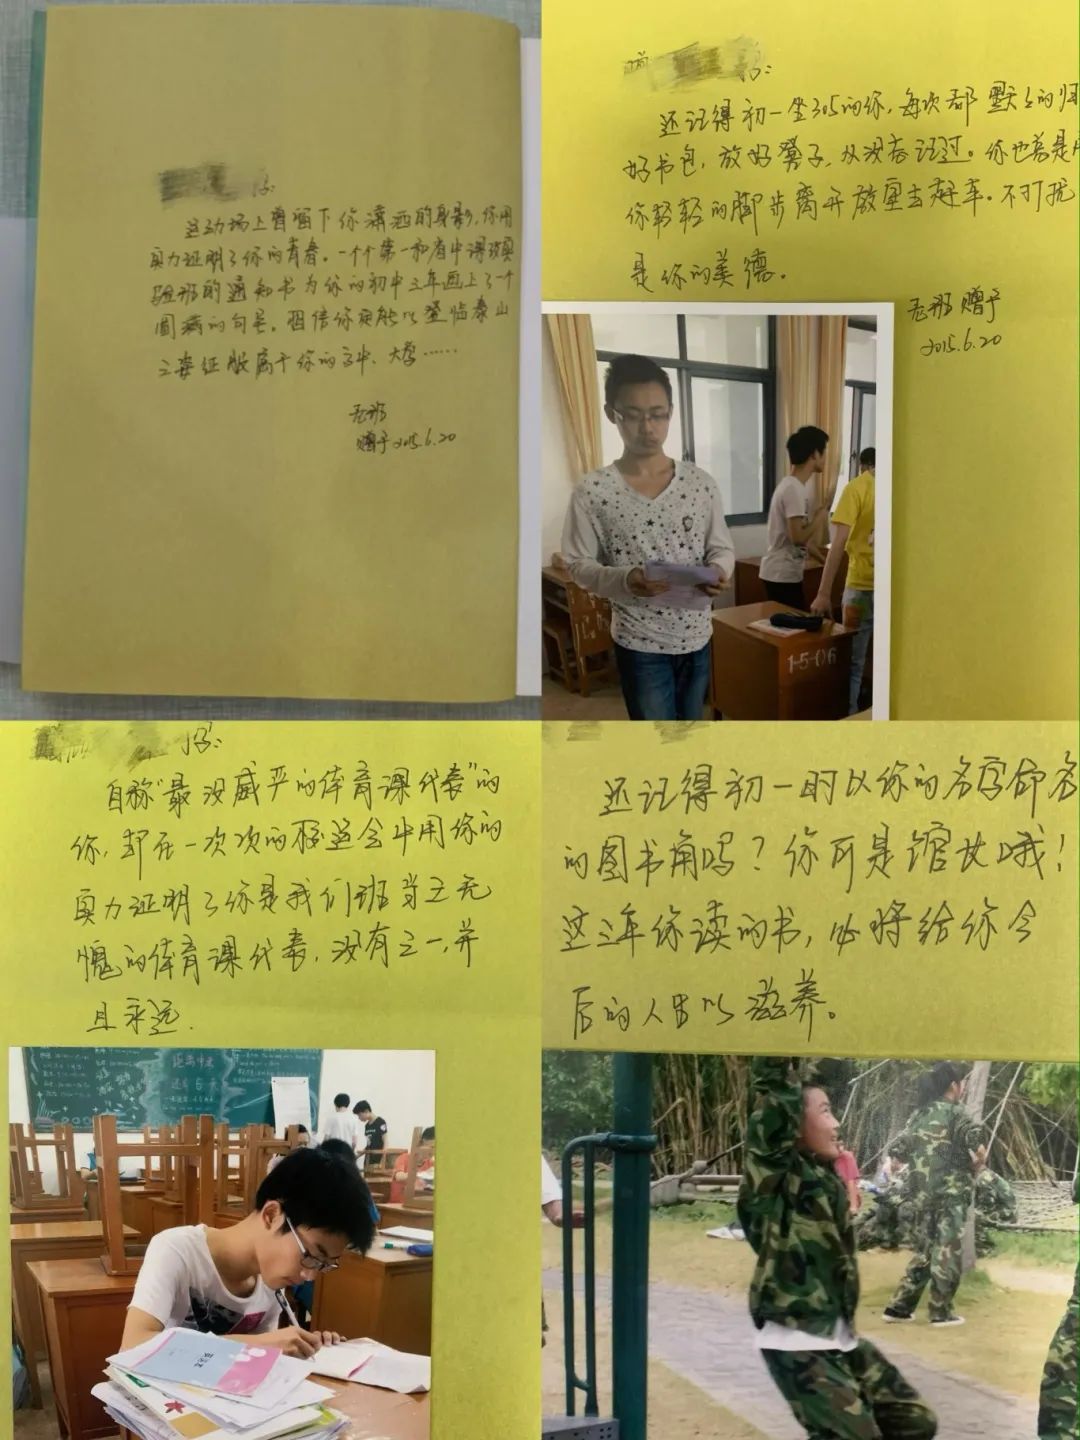 好:
运动场上曾留下你潇洒的身影,你用
实力证明了你的青春。一个个第一和省中课改实
验班的通知书为你的初中三年画上了一个
圆满的句号。相信你定能以登临泰山
之姿征服属于你的高中、大学……
老班
赠予 2015.6.20
赠 好:
还记得初一坐305的你,每次都默默的归
好书包,放好凳子,从没忘记过。你也总是用
你轻轻的脚步离开教室去赶车。不打扰
是你的美德。
老班 赠予
2015.6.20
1-5-06
好:
自称"最没威严的体育课代表"的
你,却在一次次的校运会中用你的
实力证明了你是我们班当之无
愧的体育课代表,没有之一,并
且永远.
还记得初一时以你的名字命名
的图书角吗?你可是馆长哦!
这三年你读的书,必将给你今
后的人生以滋养。
距离中考
还有6天